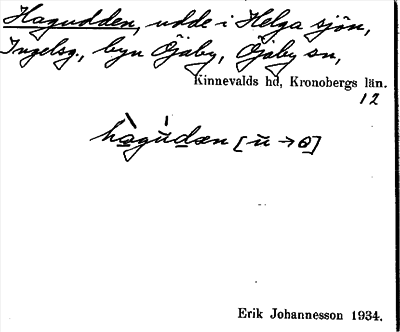 Hagudden, udde i Helga sjön,
Ingelsg., byn Öjaby, Öjaby sn,
Kinnevalds hd, Kronobergs län.
12
hàgu̅dæn [u̅ → ɵ]
Erik Johannesson 1934.